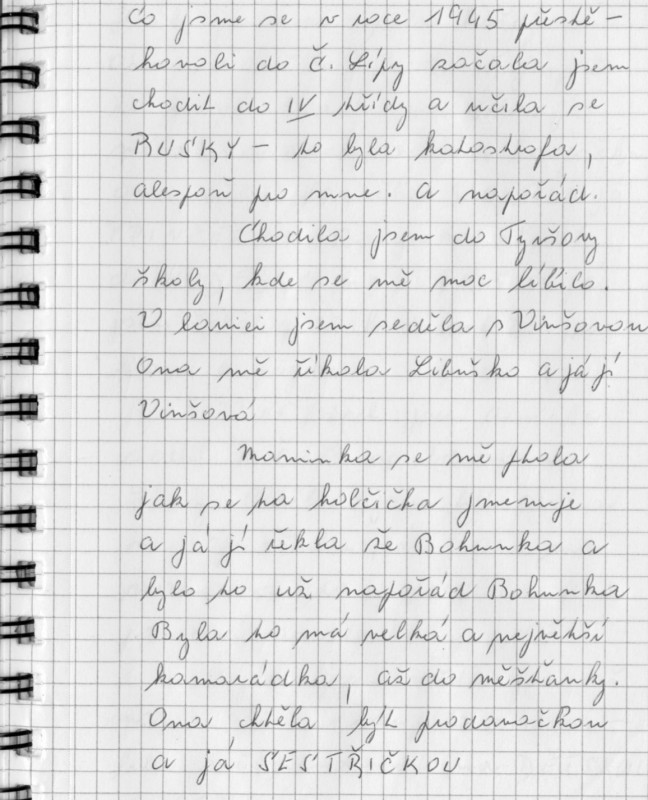 Co jsme se v roce 1945 přestě-
hovali do Č. Lípy začala jsem
chodit do IV třídy a učila se
RUSKY - to byla katastrofa,
alespoň pro mne. a napořád.
Chodila jsem do Tyršovy
školy, kde se mě moc líbilo.
V lavici jsem seděla s Vinšovou
Ona mě říkala Libuško a já jí
Vinšová
Maminka se mě ptala
jak se ta holčička jmenuje
a já jí řekla že Bohunka a
bylo to už napořád Bohunka
Byla to má velká a největší
kamarádka, až do měšťanky.
Ona chtěla být prodavačkou
a já SESTŘIČKOU